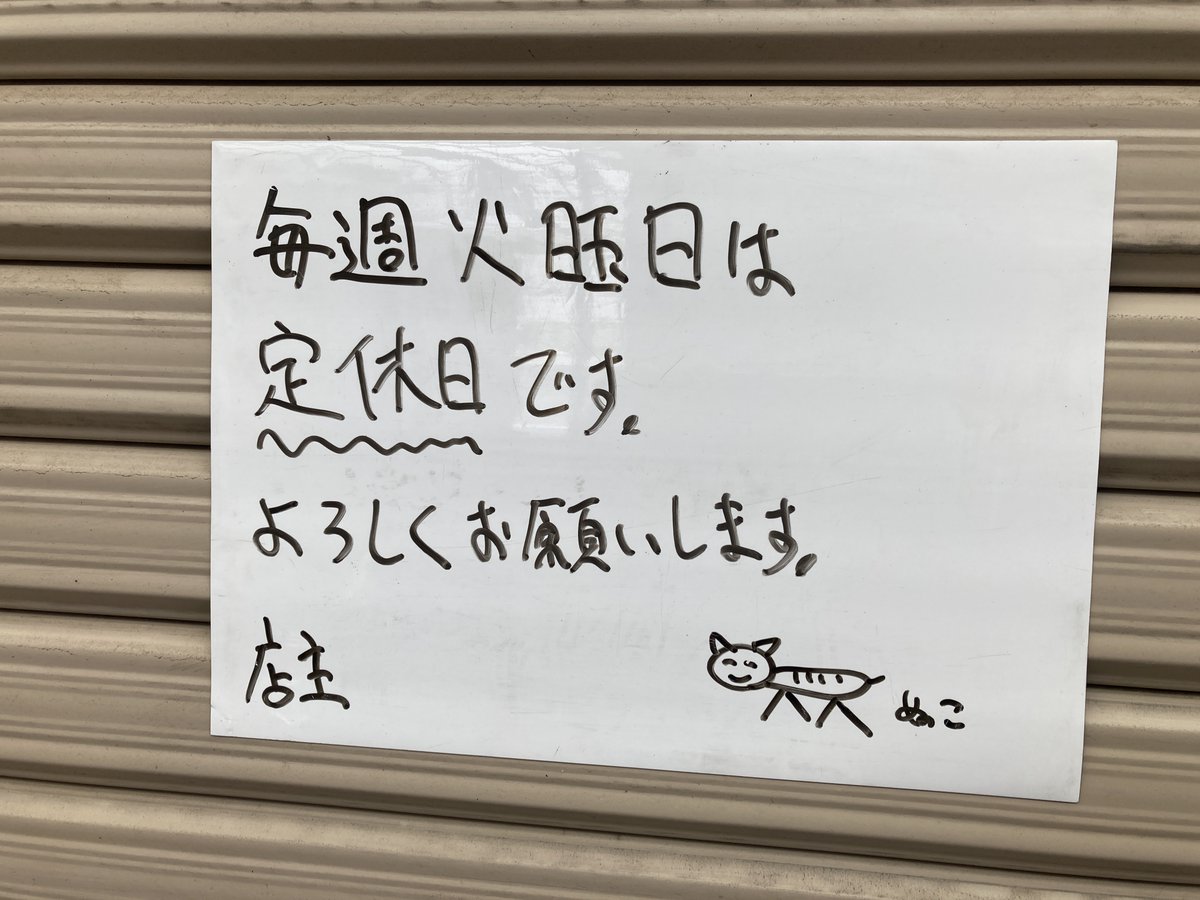 毎週火曜日は
定休日です。
よろしくお願いします。
店主
ぬこ